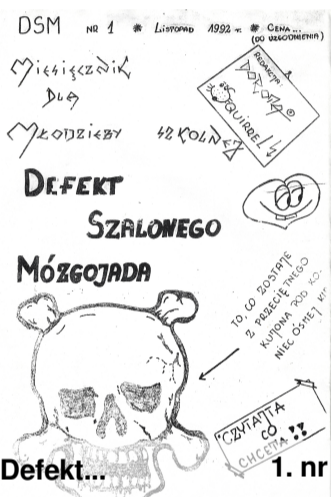 DSM NR 1 * LISTOPAD 1992 r. * CENA...
(DO UZGODNIENIA)
MIESIĘCZNIK
DLA
MŁODZIEŻY SZKOLNEJ
REDAKCJA:
DOROTA
SQUIRREL
DEFEKT
SZALONEGO
MÓZGOJADA
TO, CO ZOSTAJE
Z PRZECIĘTNEGO
KUJONA POD KO-
NIEC ÓSMEJ KL.
"CZYTAJTA
CO
CHCETA"!!
Defekt... 1. nr